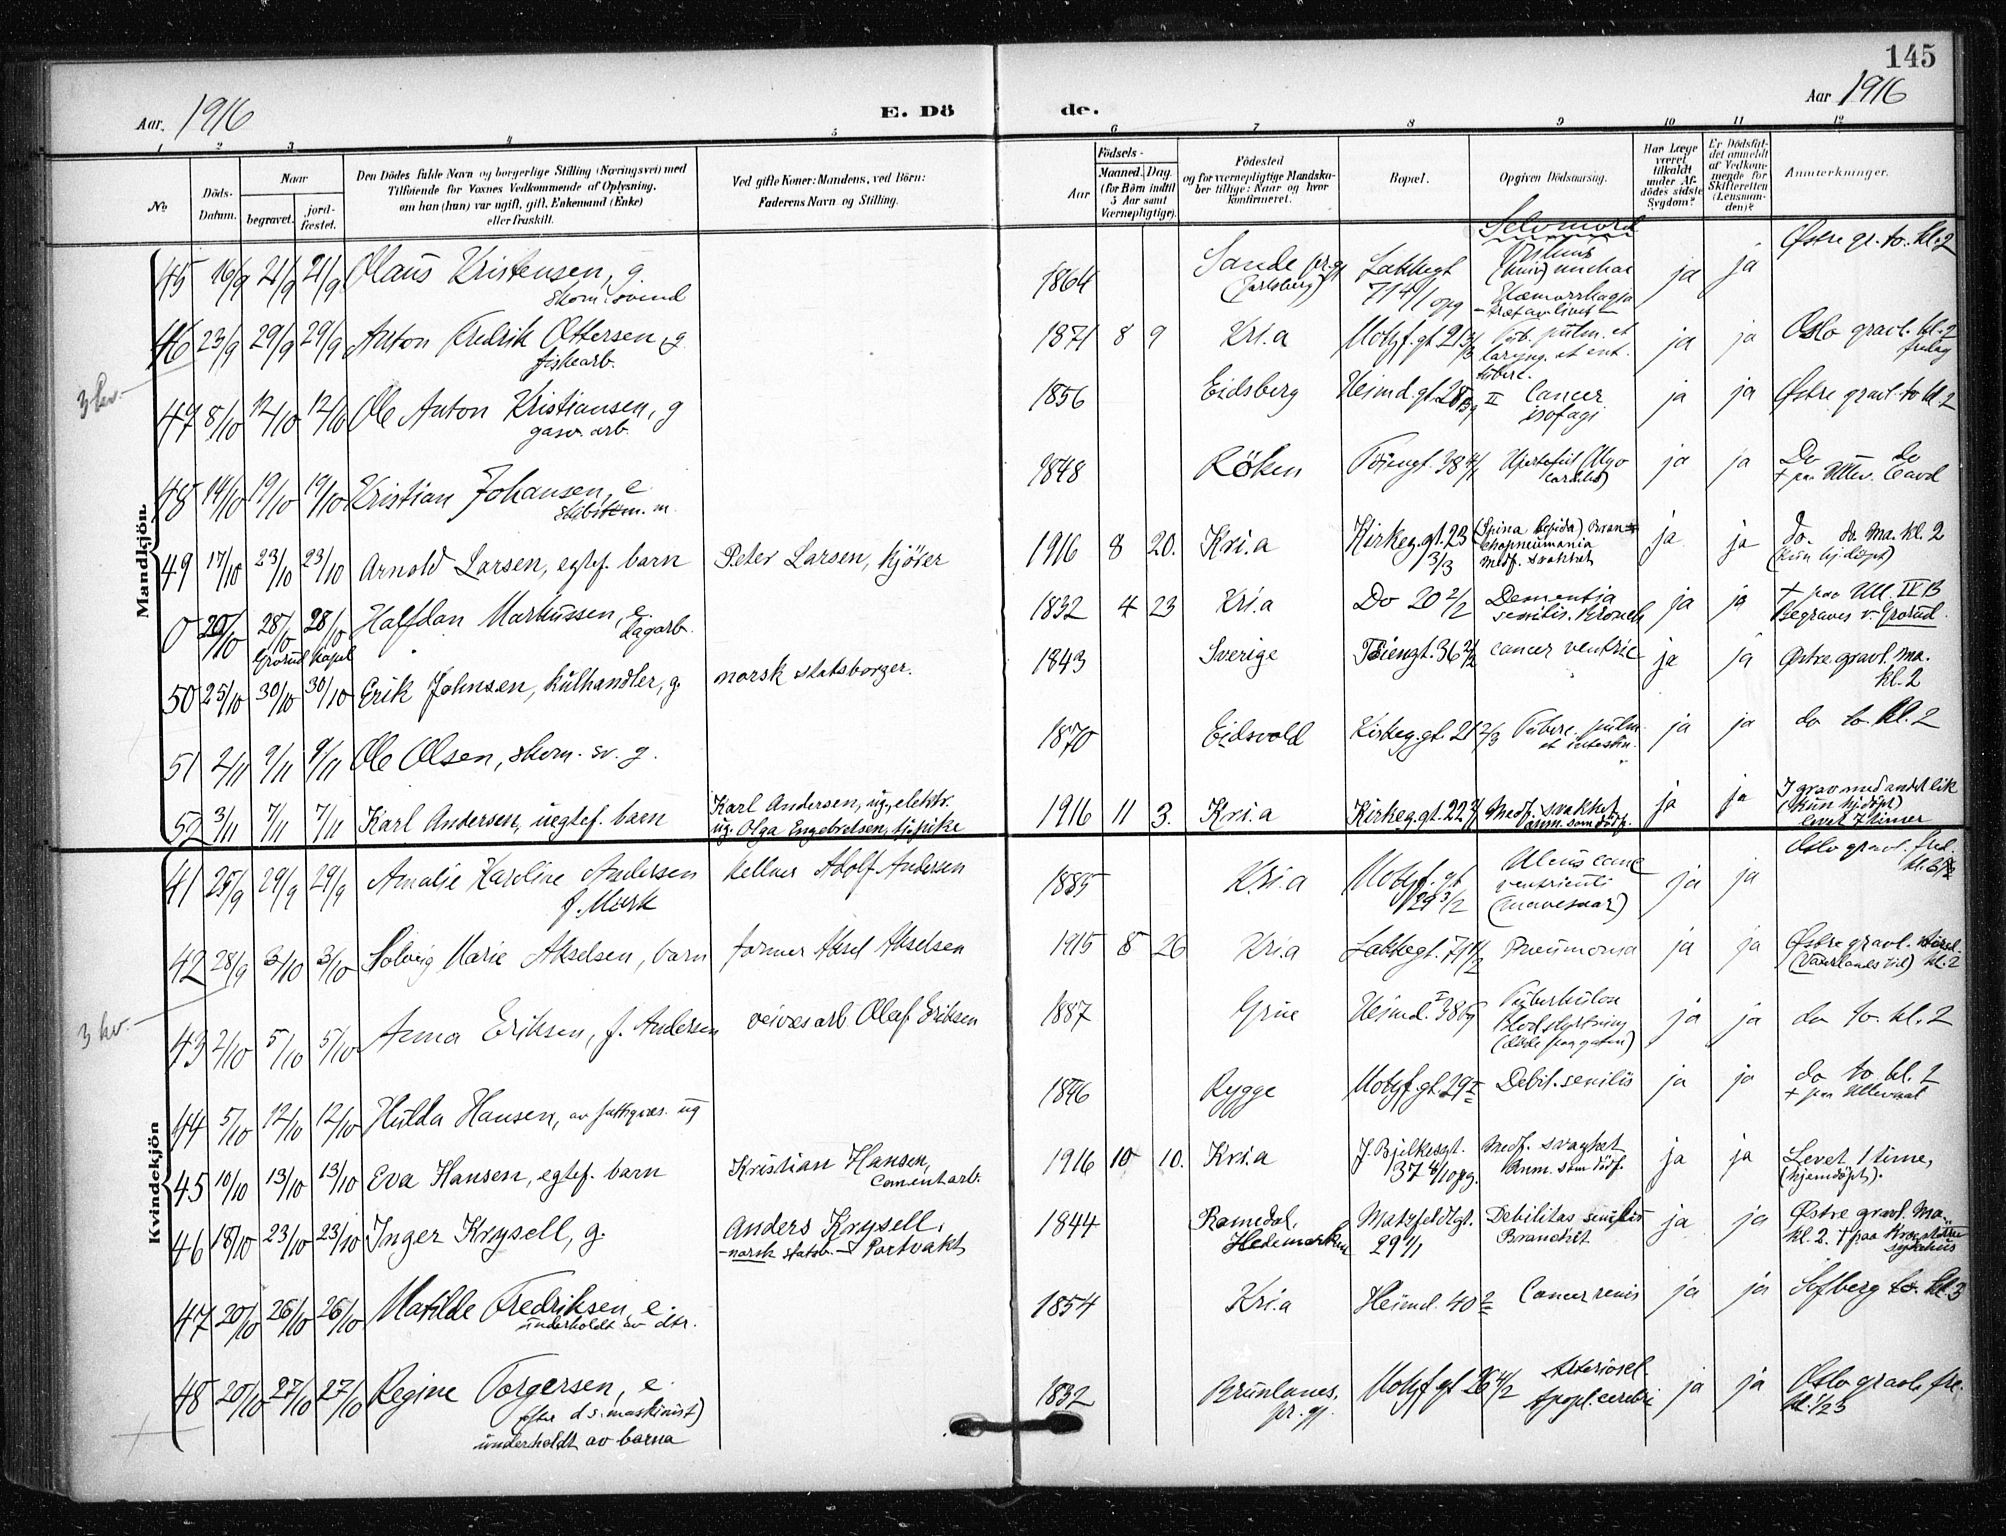 145
Aar. 1916 E. Dö de. Aar 1916
1 2 3 4 5 6 7 8 9 10 11 12
No
Döds-Datum.
Naar
begravet.
jord-fæstet.
Den Dödes fulde Navn og borgerlige Stilling (Næringsvei) med
Tilföiende for Voxnes Vedkommende af Oplysning,
om han (hun) var ugift, gift, Enkemand (Enke)
eller fraskilt.
Ved gifte Koner: Mandens, ved Börn:
Faderens Navn og Stilling.
Födsels-
Aar
Maaned. Dag.
(for Börn indtil
5 Aar samt
Værnepligtige).
Födested
og for værnepligtige Mandska-
ber tillige: Naar og hvor
konfirmeret.
Bopæl.
Opgiven Dödsaarsag.
Har Læge
været
tilkaldt
under Af-
dödes sidste
Sygdom?
Er Dödsfal-
det anmeldt
af Vedkom-
mende for
Skifteretten
(Lensman-
den)?
Anmærkninger.
Mandkjön.
45 16/9 21/9 21/9 Olaus Kristensen, g. skom. svend 1864 Sande pr.gj. (Jarlsberg) Lakkegt 71 4/1 opg Selvmord ja ja Østre gr. to. kl. 2
46 23/9 29/9 29/9 Anton Fredrik Ottersen, g. fiskearb. 1871 8 9 Kri.a Motzf.gt 21 3/3 Tub. pulm. et laryng. et ent. ja ja Oslo gravl. kl. 2 fredag
3 kv.
47 8/10 12/10 12/10 Ole Anton Kristiansen, g gasv. arb. 1856 Eidsberg Heimd.gt. 28 II Cancer isofagi ja ja Østre gravl. to kl 2
48 14/10 19/10 19/10 Kristian Johansen, e. 1848 Röken Töiengt. 38 4/1 ja ja Do do + paa Ullev.
49 17/10 23/10 23/10 Arnold Larsen, egtef. barn Peter Larsen, kjörer 1916 8 20. Kri.a Kirkeg.gt. 23 3/3 (Spina bifida) Bronchopneumonia Medf. svakhet ja ja do. do ma. kl. 2 (kun hj.döpt)
0 20/10 28/10 28/10 Halfdan Markussen, e. Dagarb. 1832 4 23 Kri.a Do 20 2/2 Dementia senilis. Bronch ja ja + paa Ull. IV B Begraves v. Grorud.
Grorud kapel
50 25/10 30/10 30/10 Erik Johnsen, kulhandler, g. norsk statsborger. 1843 Sverige Töiengt. 36 2/2 cancer ventric ja ja Østre gravl. ma. kl. 2
51 2/11 9/11 9/11 Ole Olsen, skom. sv. g. 1870 Eidsvold Kirkeg.gt. 21 2/3 Tuberc. pulm. et intestin. ja ja do to. kl. 2
52 3/11 7/11 7/11 Karl Andersen, uegtef. barn Karl Andersen, ug., elektr. ug. Olga Engebretsen, tj.pike 1916 11 3. Kri.a Kirkeg.gt. 22 Medf. svakhet anm. som dödf. ja ja I grav med andet lik (kun hj.döpt) levet 7 timer
Kvindekjön
41 25/9 29/9 29/9 Amalie Karoline Andersen f. Mørk Kellner Adolf Andersen 1885 Kri.a Motzf. gt 29 3/2 Ulcus ventriculi (mavesaar) ja ja Oslo gravl. fred.
42 28/9 3/10 3/10 Solveig Marie Akselsen, barn former Aksel Akselsen 1915 8 26 Kri.a Lakkegt. 71 1/2 Pneumonia ja ja Østre gravl. tirsd. kl. 2
3 kv.
43 2/10 5/10 5/10 Anna Eriksen, f. Andersen veivæs.arb Olaf Eriksen 1887 Grue Heimd. 38 Tuberkulose Blodstyrtning (døde paa gaten) ja ja do to. kl. 2
44 5/10 12/10 12/10 Hulda Hansen, av fattigvæs. ug 1846 Rygge Motzf.gt. 29 I Debil. senilis ja ja do to. kl. 2 + paa Ullevaal
45 10/10 13/10 13/10 Eva Hansen, egtef. barn Kristian Hansen, Cementarb. 1916 10 10. Kri.a J. Bjelkesgt. 37 4/1 opg. Medf. svaghet Anm. som dödf. ja ja Levet 1 time, (hjemdöpt).
46 18/10 23/10 23/10 Inger Krysell, g. Anders Krysell, norsk statsb. Portvakt 1844 Romedal, Hedemarken Motzfeldtgt. 29 1/1 Debilitas senilis Bronchit ja ja Østre gravl. Ma. kl. 2. + paa sykehus
47 20/10 26/10 26/10 Matilde Fredriksen, e. underholdt av dtr. 1854 Kri.a Heimd. 40 2 Cancer renis ja ja Sofberg to. kl. 3
48 20/10 27/10 27/10 Regine Torgersen, e. (efter d s. maskinist) underholdt av barna 1832 Brunlanes, pr. gj. Motzf gt 26 4/2 Arterioscl. Apopl. cerebri ja ja Oslo gravl. fre. kl. 1/2 3